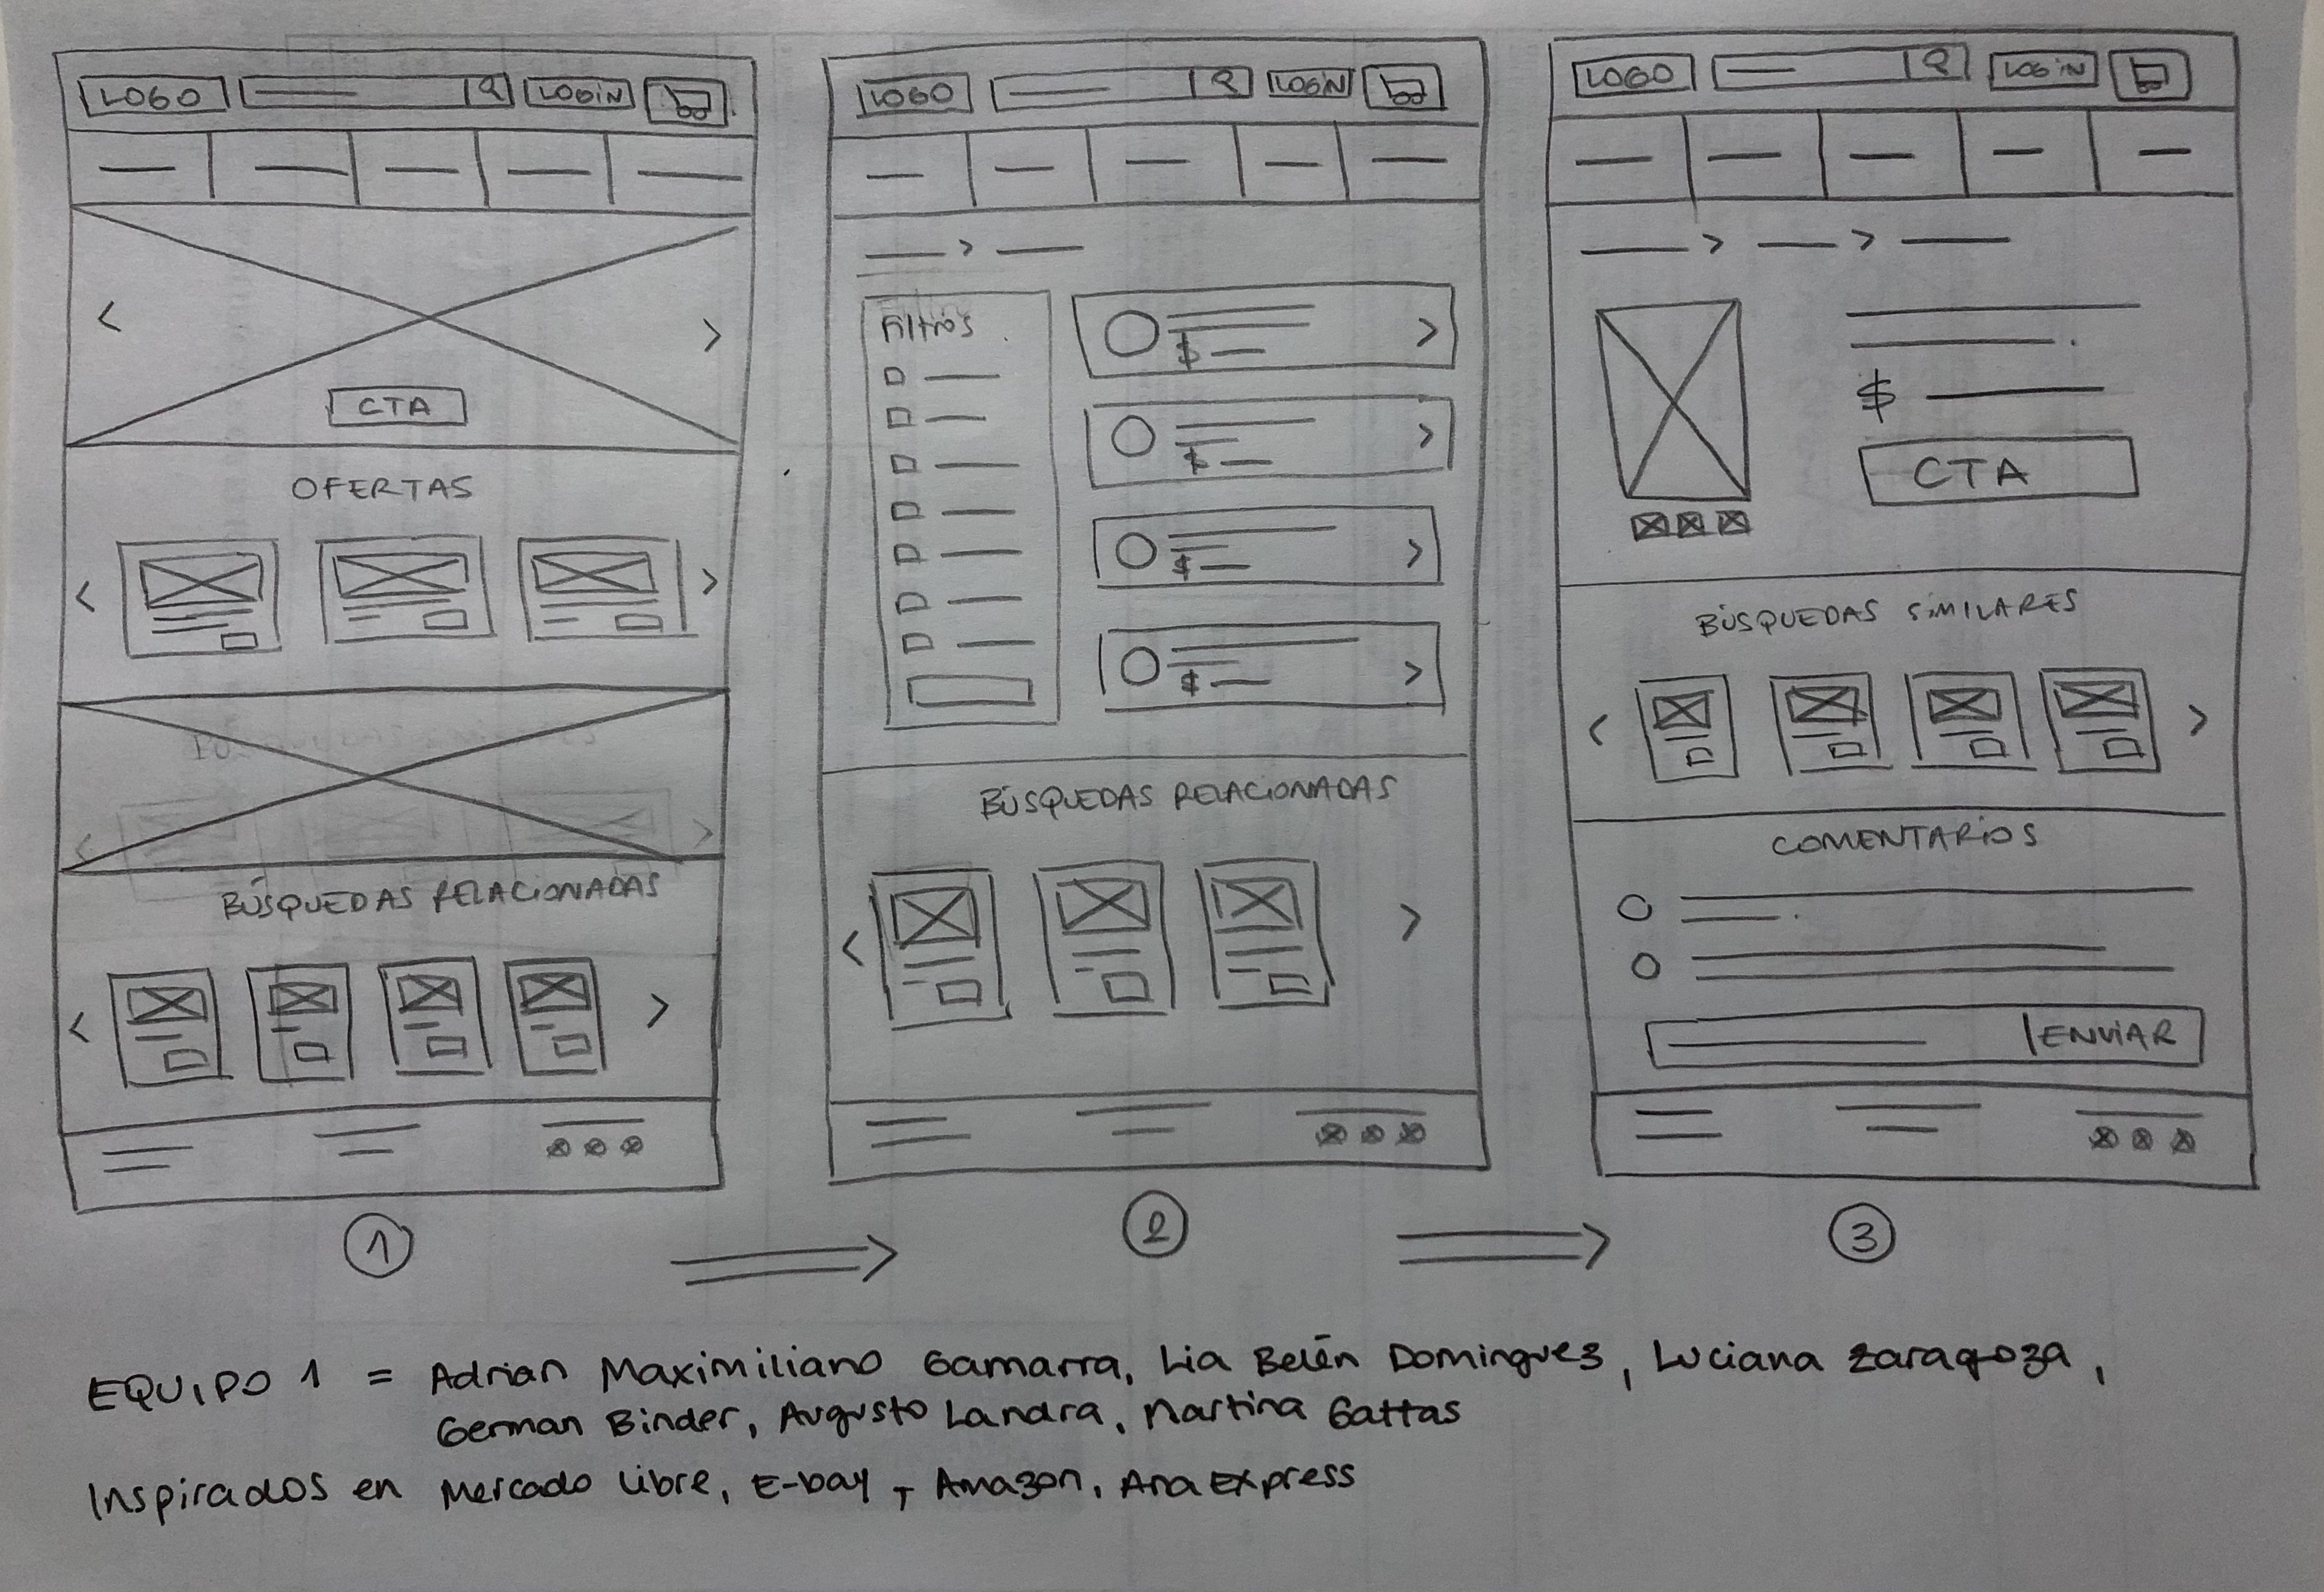 LOGO LOGIN
CTA
OFERTAS
BÚSQUEDAS RELACIONADAS
LOGO LOGIN
Filtros
$
$
$
$
BÚSQUEDAS RELACIONADAS
LOGO LOGIN
$
CTA
BÚSQUEDAS SIMILARES
COMENTARIOS
ENVIAR
1 2 3
EQUIPO 1 = Adrian Maximiliano Gamarra, Lia Belén Dominguez, Luciana Zaragoza,
German Binder, Augusto Landra, Martina Gattas
Inspirados en Mercado Libre, E-bay, Amazon, AnaExpress